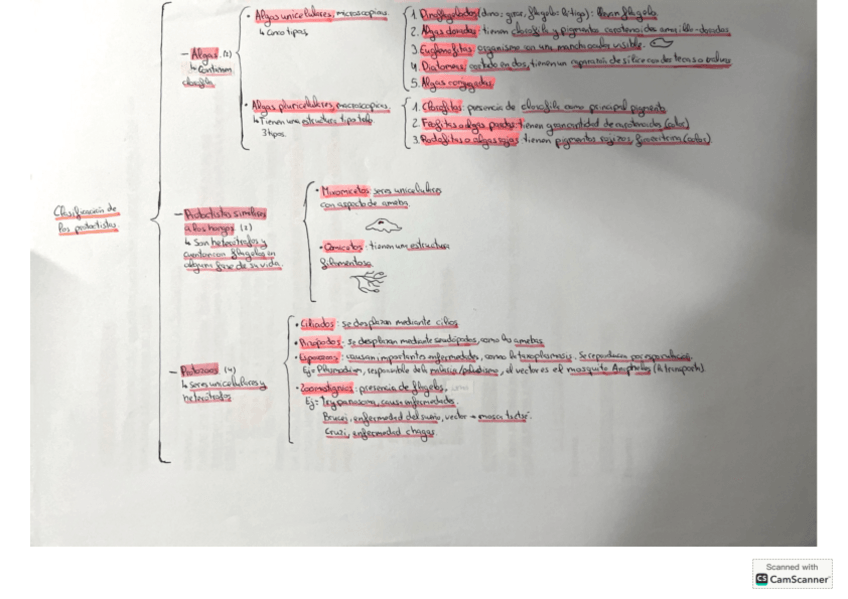 Clasificación de
los protoctistas
- Algas (2)
↳ Contienen
clorofila
• Algas unicelulares, microscópicas.
↳ Cinco tipos.
1. Dinoflagelados (dino: girar, flagelo: látigo): llevan flagelo
2. Algas doradas: tienen clorofila y pigmentos carotenoides amarillo-dorados
3. Euglenofitas: organismo con una mancha ocular visible.
4. Diatomeas: en dos, tienen un caparazón de sílice con dos tecas o
5. Algas conjugadas
• Algas pluricelulares, macroscópicas.
↳ Tienen una estructura tipo talo.
3 tipos.
1. Clorofitas: presencia de clorofila como principal pigmento
2. Feofitas o algas pardas: tienen gran cantidad de carotenoides (color)
3. Rodofitas o algas rojas: tienen pigmentos rojizos, ficoeritrina (color).
- Protoctistas similares
a los hongos (2)
↳ Son heterótrofos y
cuentan con flagelos en
alguna fase de su vida.
• Mixomicetos: seres unicelulares
con aspecto de ameba.
• Oomicetos: tienen una estructura
filamentosa
- Protozoos (4)
↳ Seres unicelulares y
heterótrofos
• Ciliados: se desplazan mediante cilios
• Rizópodos: se desplazan mediante seudópodos, como las amebas
• Esporozoos: causan importantes enfermedades, como la toxoplasmosis. Se reproducen por esporulación.
Ej: Plasmodium, responsable de la malaria/paludismo, el vector es el mosquito Anopheles (lo transporta)
• Zoomastiginos: presencia de flagelos,
Ej: Trypanosoma, causa enfermedades.
Brucei, enfermedad del sueño, vector → mosca tsetsé.
Cruzi, enfermedad chagas.
Scanned with
CS CamScanner